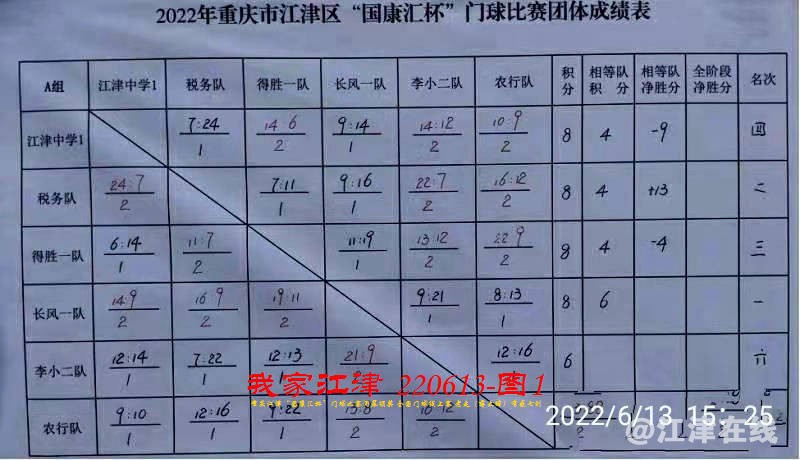 2022年重庆市江津区“国康汇杯”门球比赛团体成绩表
A组 江津中学1 税务队 得胜一队 长风一队 李小二队 农行队 积分 相等队积分 相等队净胜分 全阶段净胜分 名次
江津中学1 7:24 14 6 9:14 14:12 10:9 8 4 -9 四
1 2 1 2 2
税务队 24:7 7:11 9:16 22:7 16:12 8 4 +13 二
2 1 1 2 2
得胜一队 6:14 11:7 11:19 13:12 22 9 8 4 -4 三
1 2 1 2 2
长风一队 14:9 16 9 19:11 9:21 8:13 8 6 一
2 2 2 1 1
李小二队 12:14 7:22 12:13 21:9 12:16 6 六
1 1 1 2 1
农行队 9:10 12:16 9:22 13:8 16:12
1 1 1 2 2
我家江津 220613-图1
2022/6/13 15:25
@江津在线